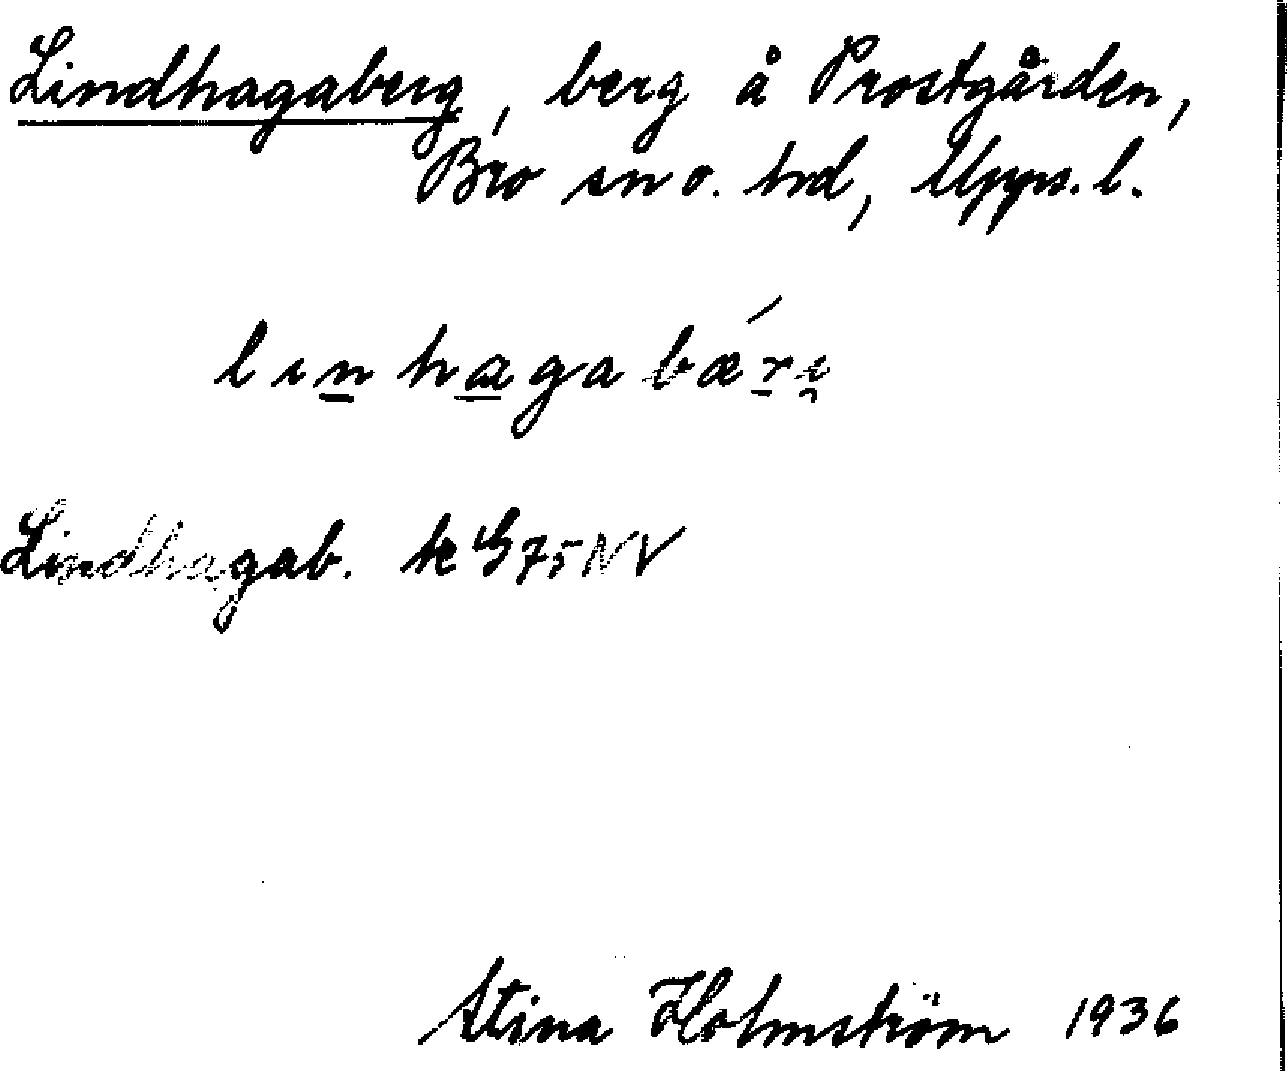 Lindhagaberg, berg å Prostgården,
Bro sn o. hd, Upps. l.
linhagabæri
Lindhagab. k G 75 NV
Stina Holmström 1936